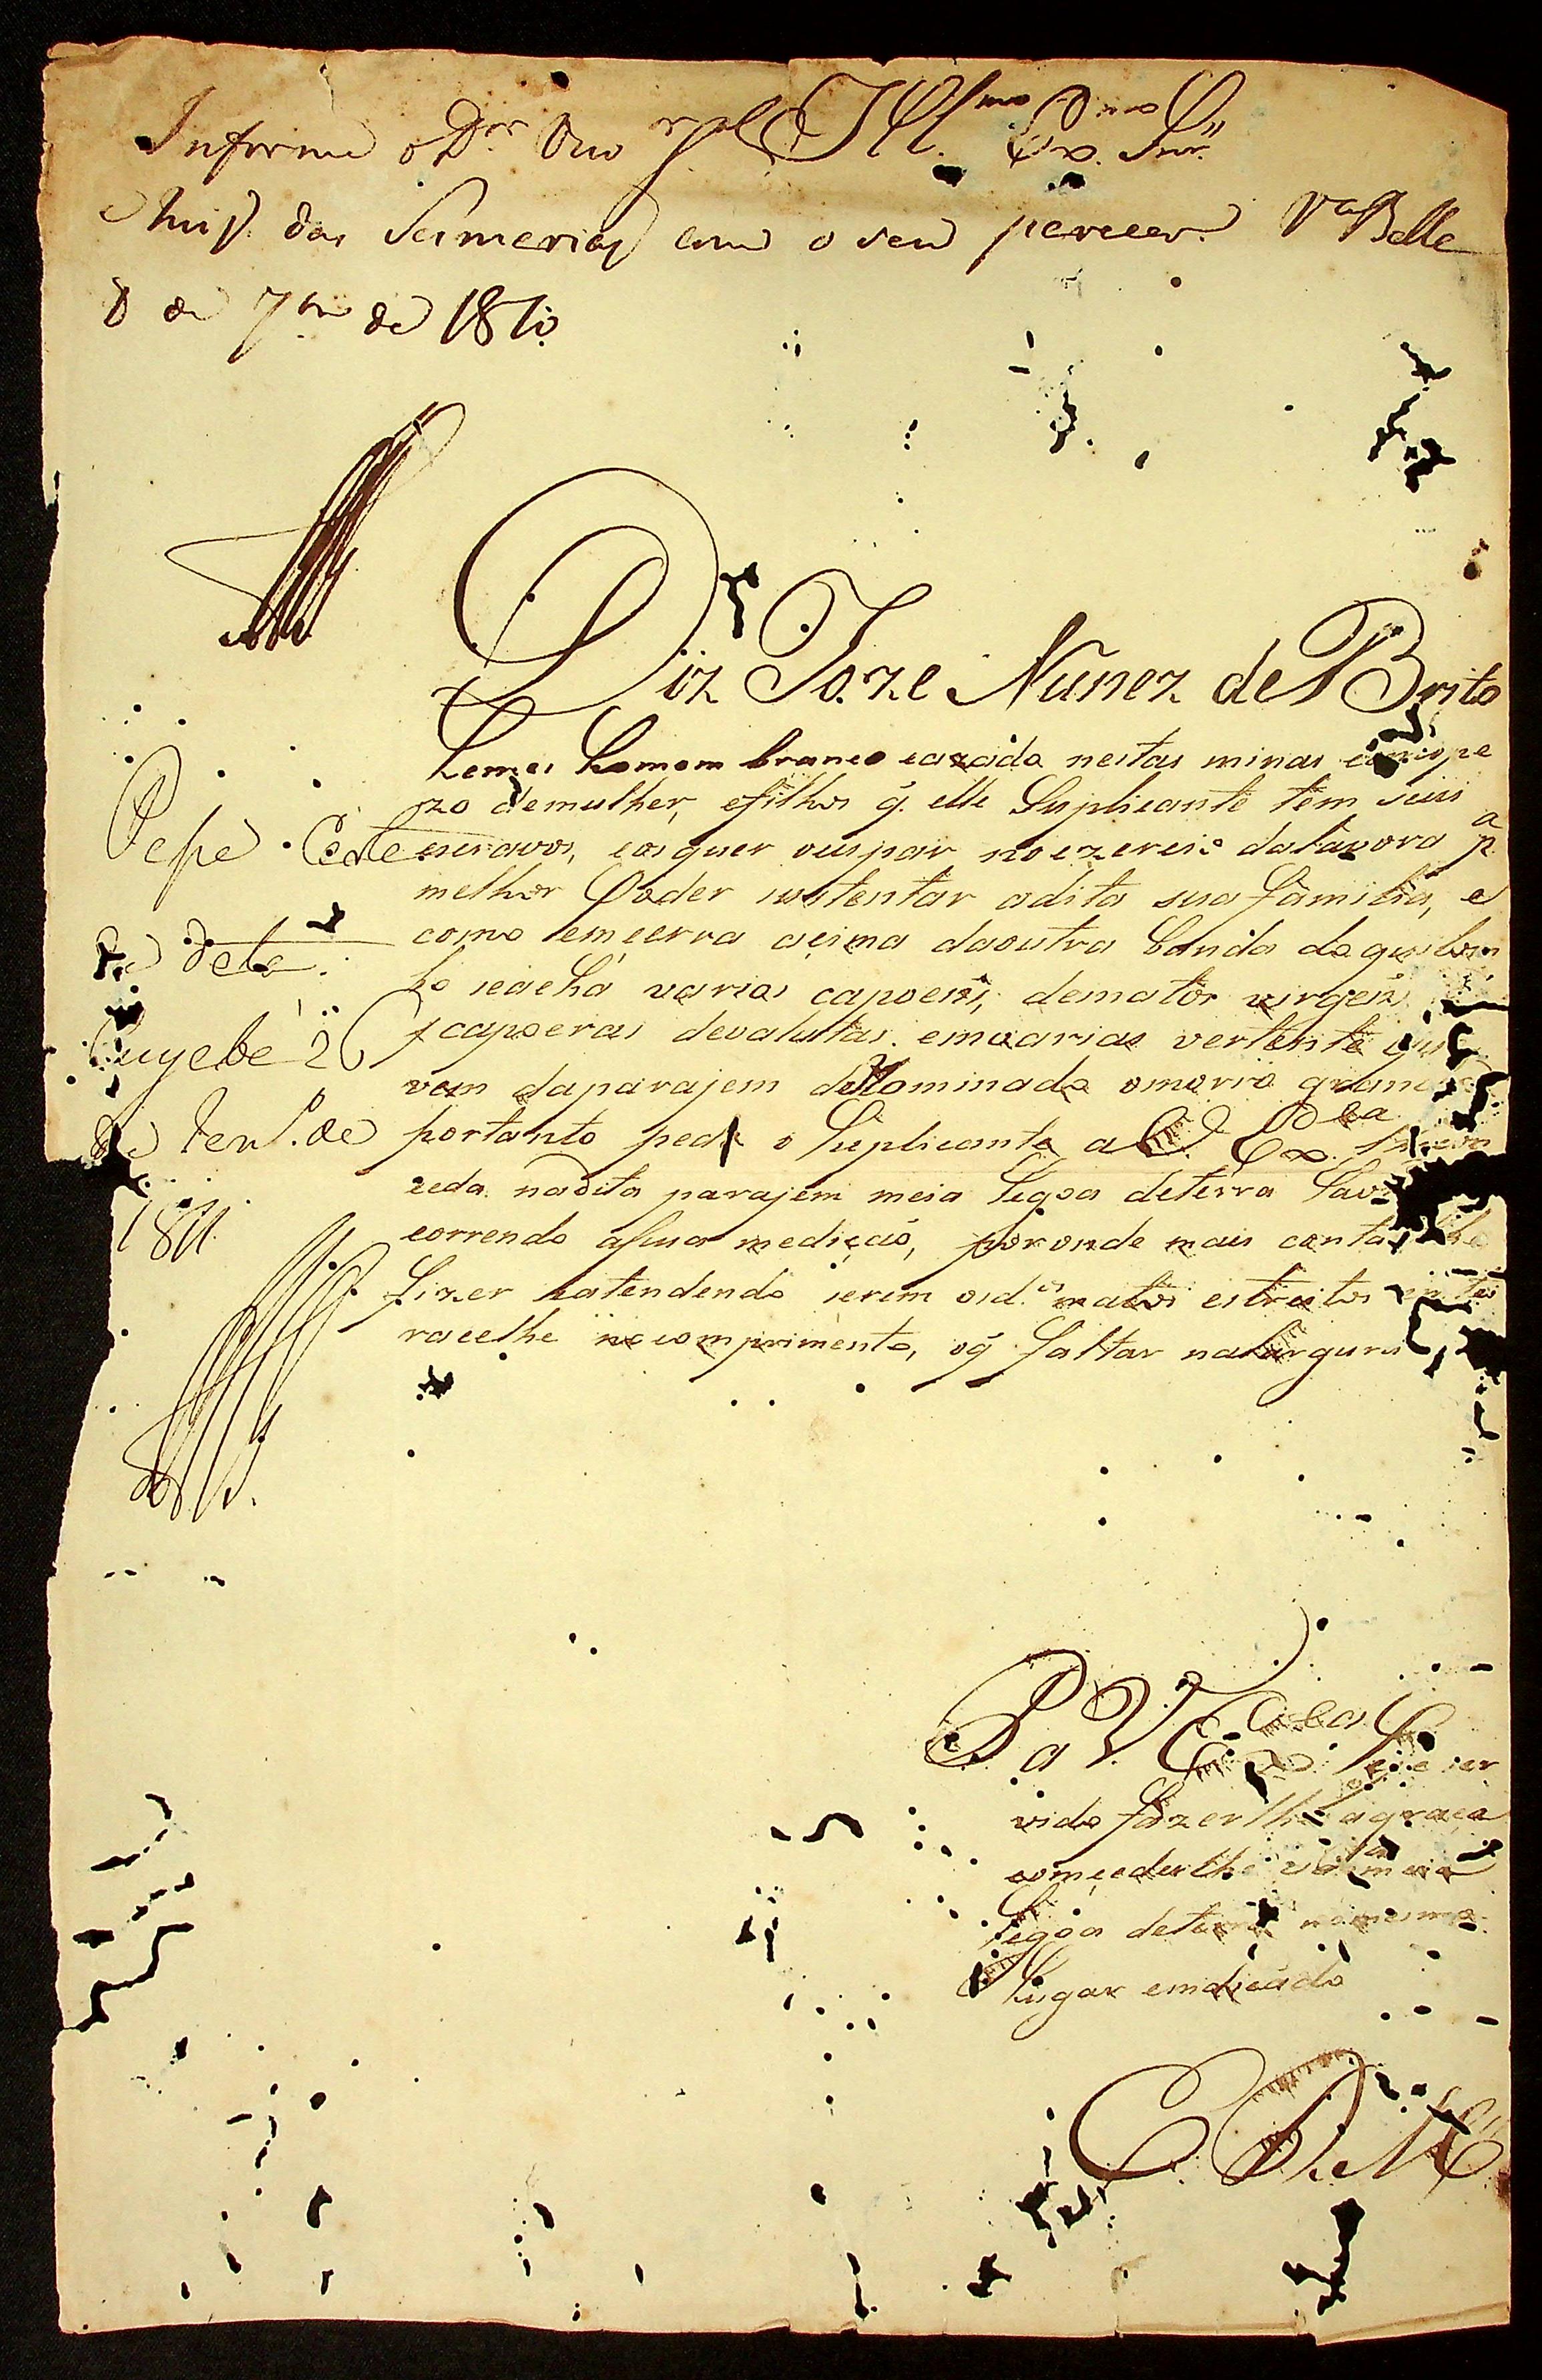 Informe o D.or Ouv.or g.al Ill.mo Ex.mo Snr.
Juis das Sesmerias com o seu parecer. V.a Bella
8 de 7bro de 1810
Diz Joze Nunez de Brito
Lemes homem branco cazado nestas minas com o pe
zo demulher, efilhos q̃. elle Suplicante tem seus
escravos, eos quer ocupar noezercisio dalavora p.a
melhor Poder sustentar adita sua familia, e
como em serra asima daoutra banda do quilom
bo seacha varios capoens, dematos virgens
e capoeras devalutas emvarias vertente que
vem daparajem denominada omorro
portanto pede o Suplicante a V. Ex.cia
seda nadita parajem meia legoa deterra Lavr
correndo asua medição, poronde mais conta lhe
fizer hatendendo serem osd.os matos estreitos
raselhe nocomprimento, oq̃ faltar nalargura
Passe Carta
de data
Cuyabá 26
de Fever.o de
1811
P a V. Ex.cia Seja ser
vido fazerlhe agraça
comcederlhe meia
legoa deterra nomesmo
Lugar emdicado
E. R. M.ce